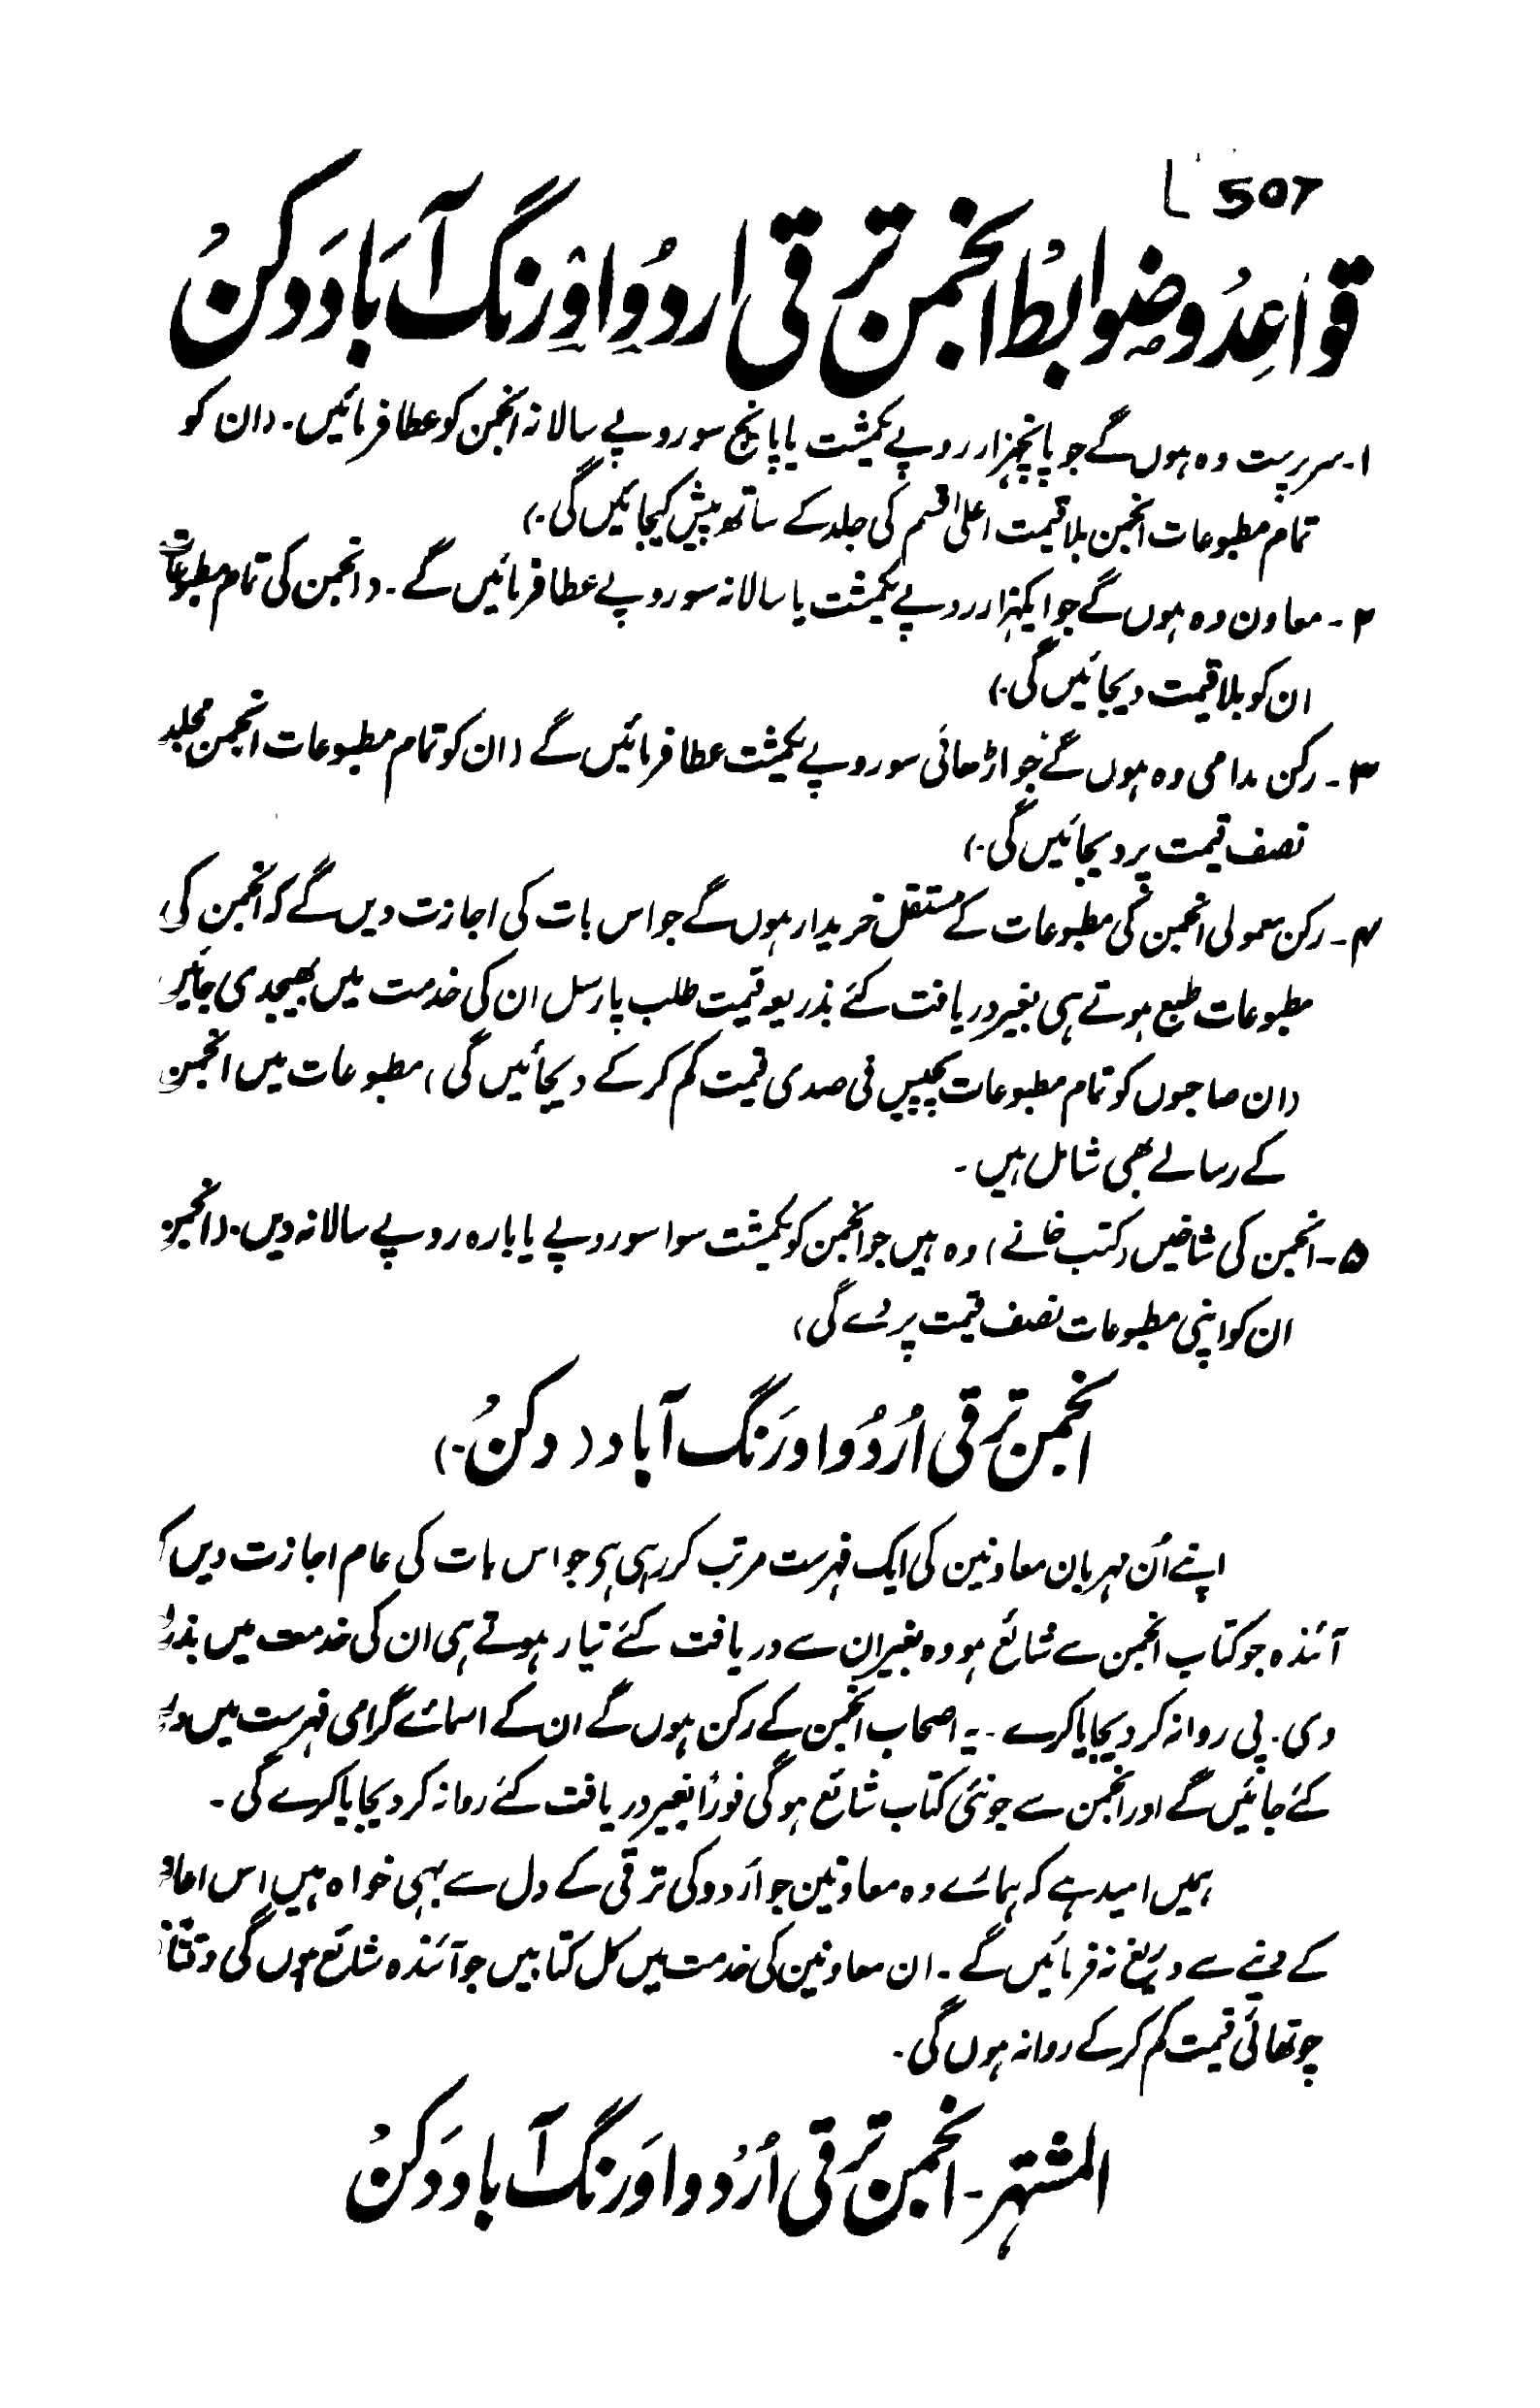 L 507
قواعد و ضوابط انجمن ترقی اردو اورنگ آباد دکن
۱۔ سرپرست وہ ہوں گے جو پانچہزار روپے یکمشت یا پانچ سو روپے سالانہ انجمن کو عطا فرمائیں۔ (ان کو
تمام مطبوعات انجمن بلا قیمت اعلیٰ قسم کی جلد کے ساتھ پیش کیجائیں گی۔)
۲۔ معاون وہ ہوں گے جو ایکہزار روپے یکمشت یا سالانہ سو روپے عطا فرمائیں گے۔ (انجمن کی تمام مطبوعات
ان کو بلا قیمت دیجائیں گی۔)
۳۔ رکن مدامی وہ ہوں گے جو اڑھائی سو روپے یکمشت عطا فرمائیں گے (ان کو تمام مطبوعات انجمن مجلد
نصف قیمت پر دیجائیں گی۔)
۴۔ رکن معمولی انجمن کی مطبوعات کے مستقل خریدار ہوں گے جو اس بات کی اجازت دیں گے کہ انجمن کی
مطبوعات طبع ہوتے ہی بغیر دریافت کئے بذریعہ قیمت طلب پارسل ان کی خدمت میں بھیجدی جائیں
(ان صاحبوں کو تمام مطبوعات پچیس فی صدی قیمت کم کر کے دیجائیں گی) مطبوعات میں انجمن
کے رسالے بھی شامل ہیں۔
۵۔ انجمن کی شاخیں (کتب خانے) وہ ہیں جو انجمن کو یکمشت سوا سو روپے یا بارہ روپے سالانہ دیں۔ (انجمن
ان کو اپنی مطبوعات نصف قیمت پر دے گی)
انجمن ترقی اُردُو اورنگ آباد (دکن)
اپنے اُن مہربان معاونین کی ایک فہرست مرتب کر رہی ہی جو اس بات کی عام اجازت دیں کہ
آئندہ جو کتاب انجمن سے شائع ہو وہ بغیر ان سے دریافت کئے تیار ہوتے ہی ان کی خدمت میں
وی۔ پی روانہ کر دیجایا کرے۔ یہ اصحاب انجمن کے رکن ہوں گے ان کے اسمائے گرامی فہرست میں
کئے جائیں گے اور انجمن سے جو نئی کتاب شائع ہو گی فوراً بغیر دریافت کئے روانہ کر دیجایا کرے گی۔
ہمیں امید ہے کہ ہمارے وہ معاونین جو اُردو کی ترقی کے دل سے بہی خواہ ہیں اس
کے دینے سے دریغ نہ فرمائیں گے۔ ان معاونین کی خدمت میں کل کتابیں جو آئندہ شائع ہوں گی
چوتھائی قیمت کم کر کے روانہ ہوں گی۔
المشتہر۔ انجمن ترقی اُردو اورنگ آباد دکن